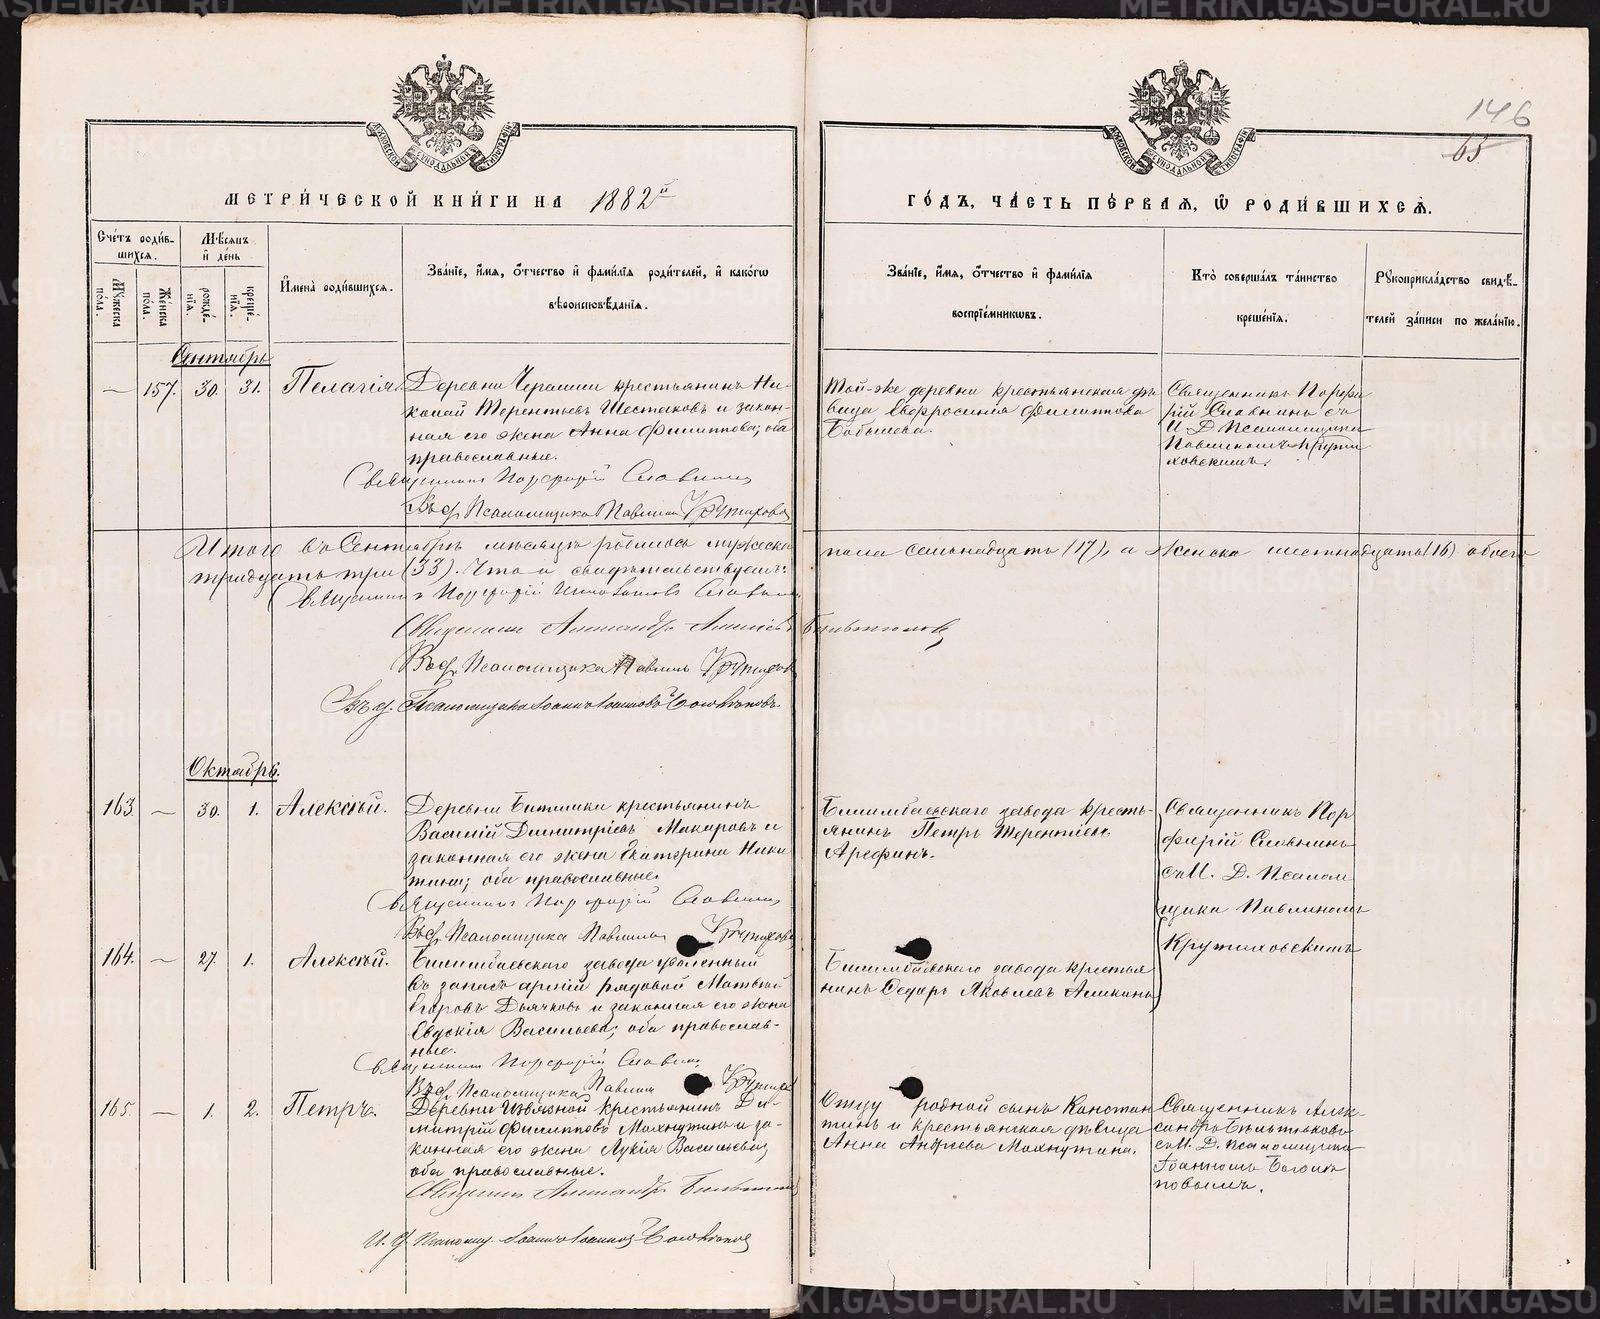 146
65
МЕТРИ́ЧЕСКОЙ КНИ́ГИ НА 1882й
ГО́ДЪ, ЧА́СТЬ ПЕ́РВАѦ, Ѡ РОДИ́ВШИХСѦ.
Сче́тъ роди́в-
шихсѧ.
Мѣ́сѧцъ
и де́нь
Мꙋ́жеска по́ла.
Же́нска по́ла.
рожде́-
нїѧ.
креще́-
нїѧ.
И҆мена̀ роди́вшихсѧ.
Зва́нїе, и҆́мѧ, о҆́тчество и҆ фами́лїѧ роди́телей, и҆ како́гѡ
вѣроисповѣ́данїѧ.
Зва́нїе, и҆́мѧ, о҆́тчество и҆ фами́лїѧ
воспрїе́мникѡвъ.
Кто̀ соверша́лъ та́инство
креще́нїѧ.
Рꙋкоприкла́дство свидѣ́-
телей за́писи по жела́нїю.
Сентябрь
— 157. 30. 31. Пелагія.
Деревни Черемши крестьянинъ Ни-
колай Терентьевъ Шестаковъ и закон-
ная его жена Анна Филиппова; оба
православные.
Священникъ Порфирій Славнинъ
Въ д. Псаломщика Павлинъ Крутиховскій
Той-же деревни крестьянская дѣ-
вица Евфросинія Филиппова
Бабышева.
Священникъ Порфи
рій Славнинъ съ
И. Д. Псаломщика
Павлиномъ Крути
ховскимъ.
Итого въ Сентябрѣ мѣсяцѣ родилось мужеска пола семьнадцать (17), а женска шестнадцать (16) обоего
тридцать три (33). Что и свидѣтельствуемъ:
Священникъ Порфирій Славнинъ
Священникъ Александръ Алексѣевъ Бѣльтюковъ
Въ д. Псаломщика Павлинъ Крутиховскій
Въ д. Псаломщика Іоаннъ Іоанновъ Боголѣповъ.
Октябрь.
163. — 30. 1. Алексѣй.
Деревни Битимки крестьянинъ
Василій Димитріевъ Макаровъ и
законная его жена Екатерина Ники
тина; оба православные.
Священникъ Порфирій Славнинъ
Въ д. Псаломщика Павлинъ Крутиховскій
Билимбаевскаго завода кресть-
янинъ Петръ Терентіевъ
Арефинъ.
Священникъ Пор
фирій Славнинъ
съ И. Д. Псалом
щика Павлиномъ
Крутиховскимъ
164. — 27. 1. Алексѣй.
Билимбаевскаго завода уволенный
въ запасъ арміи рядовой Матвѣй
Егоровъ Дьячковъ и законная его жена
Евдокія Васильева; оба православ-
ные.
Священникъ Порфирій Славнинъ
Въ д. Псаломщика Павлинъ Крутиховскій
Билимбаевскаго завода крестья
нинъ Ѳедоръ Яковлевъ Аликинъ
165. — 1. 2. Петръ.
Деревни Извязной крестьянинъ Ди-
митрій Филипповъ Махнутинъ и за-
конная его жена Лукія Васильева;
оба православные.
Священникъ Александръ Бѣльтюковъ
И. Д. Псаломщ. Іоаннъ Іоанновъ Боголѣповъ
Отцу родной сынъ Констан
тинъ и крестьянская дѣвица
Анна Андреева Махнутина.
Священникъ Алек-
сандръ Бѣльтюковъ
съ И. Д. псаломщика
Іоанномъ Боголѣ
повымъ.
METRIKI.GASO-URAL.RU